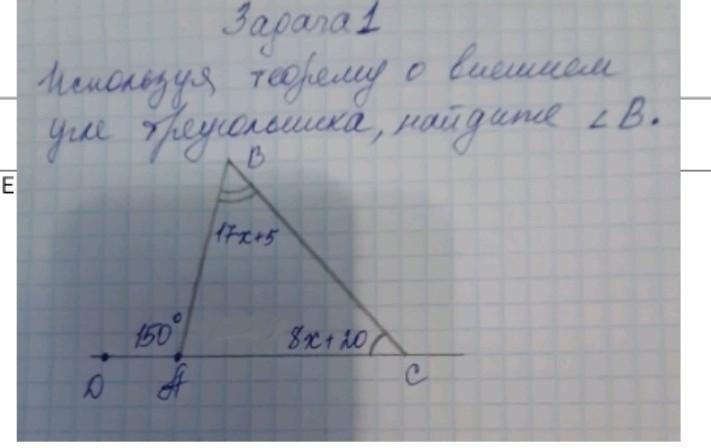 Задача 1
Используя теорему о внешнем
угле треугольника, найдите ∠B.
E
B
17x+5
150°
8x+20
D
A
C